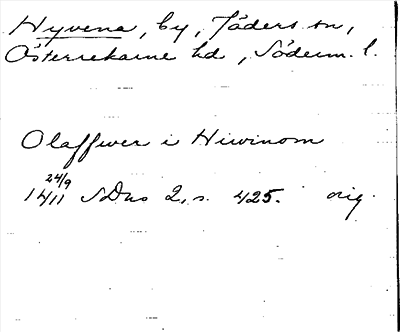 Hyvena, by, Jäders sn,
Österrekarne hd, Söderm. l.
Olaffwer i Hiwinom
24/9
1411 SDns 2, s. 425. orig.